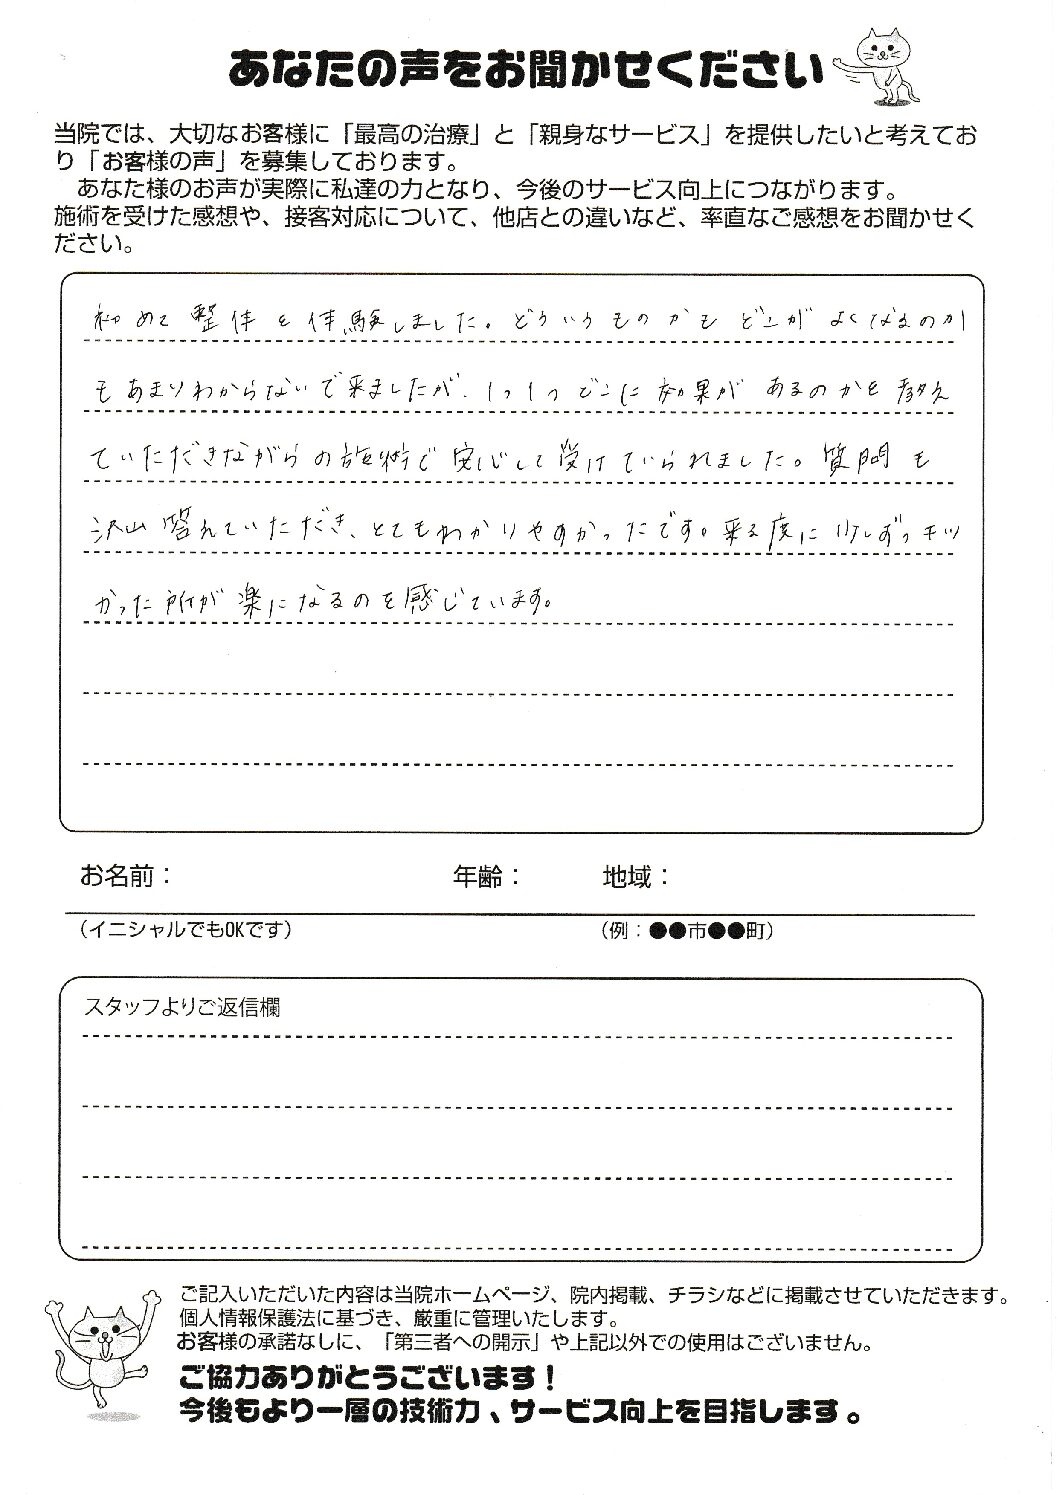 あなたの声をお聞かせください
当院では、大切なお客様に「最高の治療」と「親身なサービス」を提供したいと考えてお
り「お客様の声」を募集しております。
あなた様のお声が実際に私達の力となり、今後のサービス向上につながります。
施術を受けた感想や、接客対応について、他店との違いなど、率直なご感想をお聞かせく
ださい。
初めて整体を体験しました。どういうものかも どこが よくなるのか
もあまりわからないで来ましたが、1つ1つどこに効果が あるのかを教え
ていただきながらの施術で安心して受けていられました。質問も
沢山答えていただき、とてもわかりやすかったです。来る度に少しずつキツ
かった所が楽になるのを感じています。
お名前：
年齢：
地域：
（イニシャルでもOKです）
（例：●●市●●町）
スタッフよりご返信欄
ご記入いただいた内容は当院ホームページ、院内掲載、チラシなどに掲載させていただきます。
個人情報保護法に基づき、厳重に管理いたします。
お客様の承諾なしに、「第三者への開示」や上記以外での使用はございません。
ご協力ありがとうございます！
今後もより一層の技術力、サービス向上を目指します。